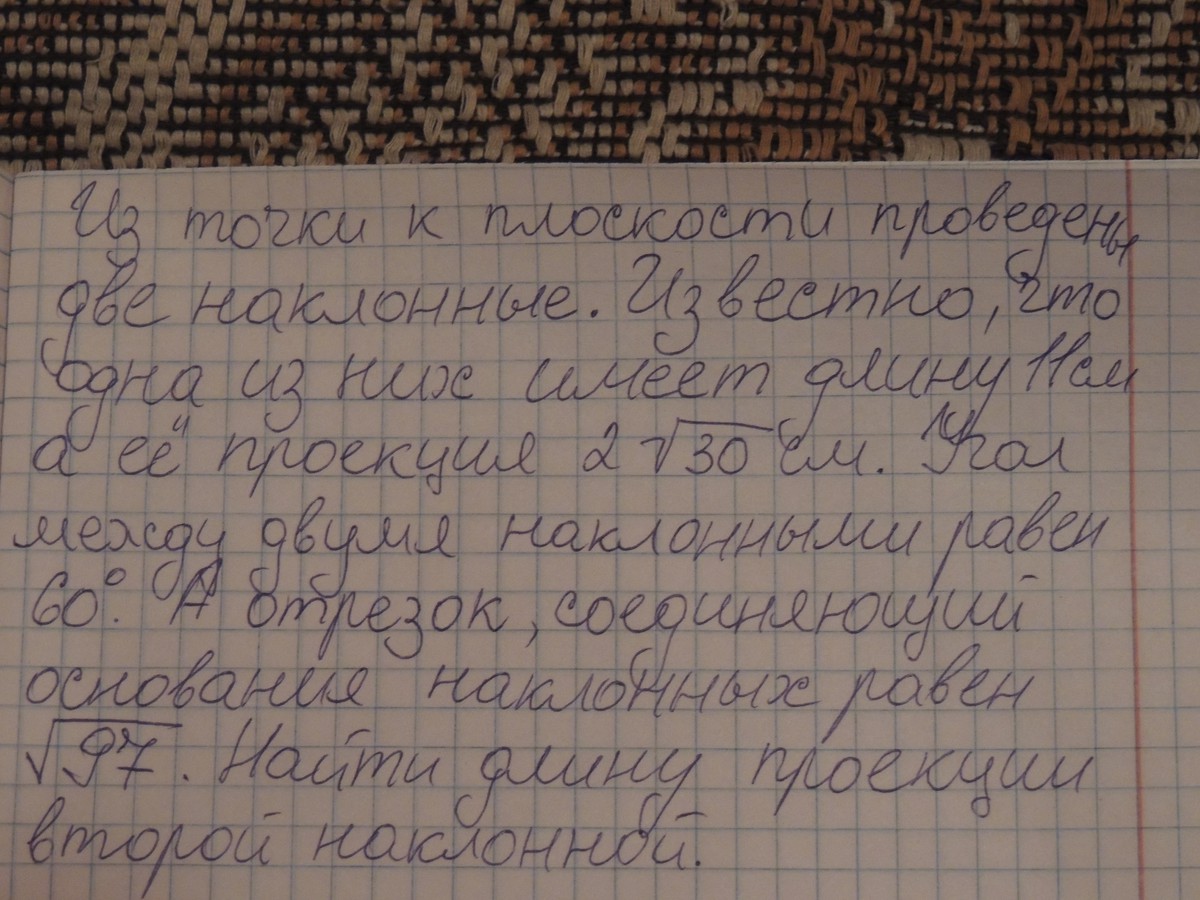 Из точки к плоскости проведены
две наклонные. Известно, что
одна из них имеет длину 11см
а её проекция 2√30 см. Угол
между двумя наклонными равен
60°. А отрезок, соединяющий
основания наклонных равен
√97. Найти длину проекции
второй наклонной.